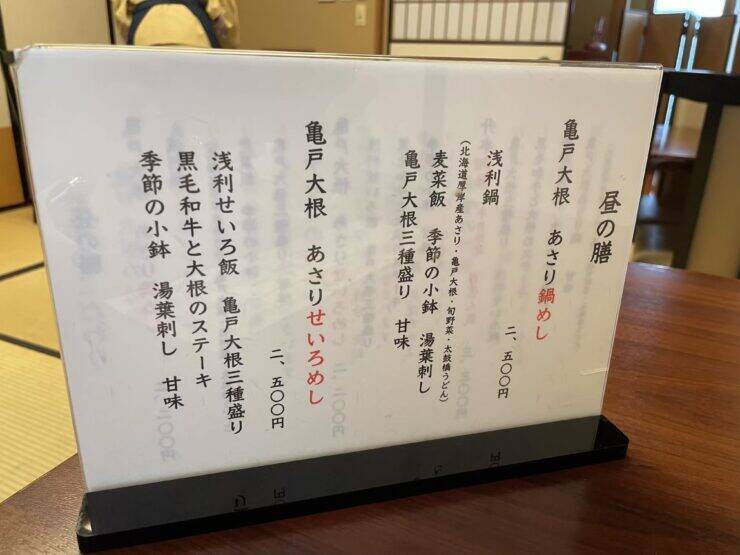 昼の膳
亀戸大根 あさり鍋めし
二、五〇〇円
浅利鍋
(北海道厚岸産あさり・亀戸大根・旬野菜・太鼓橋うどん)
麦菜飯 季節の小鉢 湯葉刺し
亀戸大根三種盛り 甘味
亀戸大根 あさりせいろめし
二、五〇〇円
浅利せいろ飯 亀戸大根三種盛り
黒毛和牛と大根のステーキ
季節の小鉢 湯葉刺し 甘味